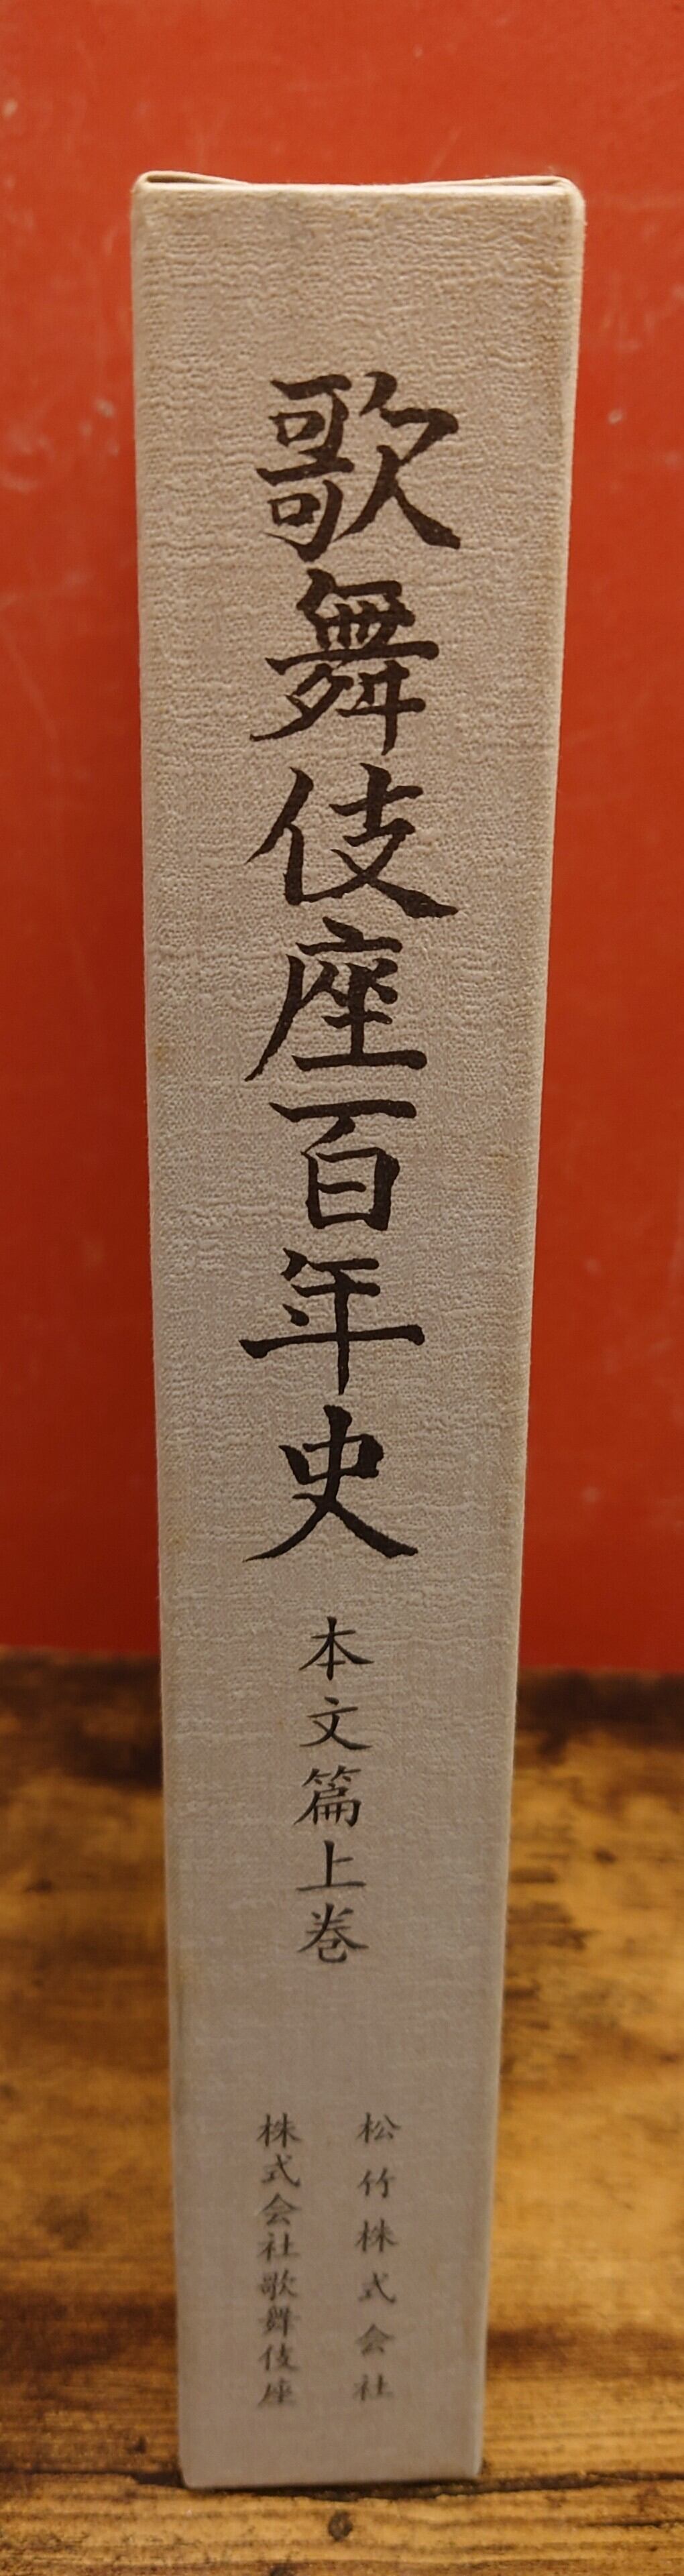 歌舞伎座百年史
本文篇上巻
松竹株式会社
株式会社歌舞伎座